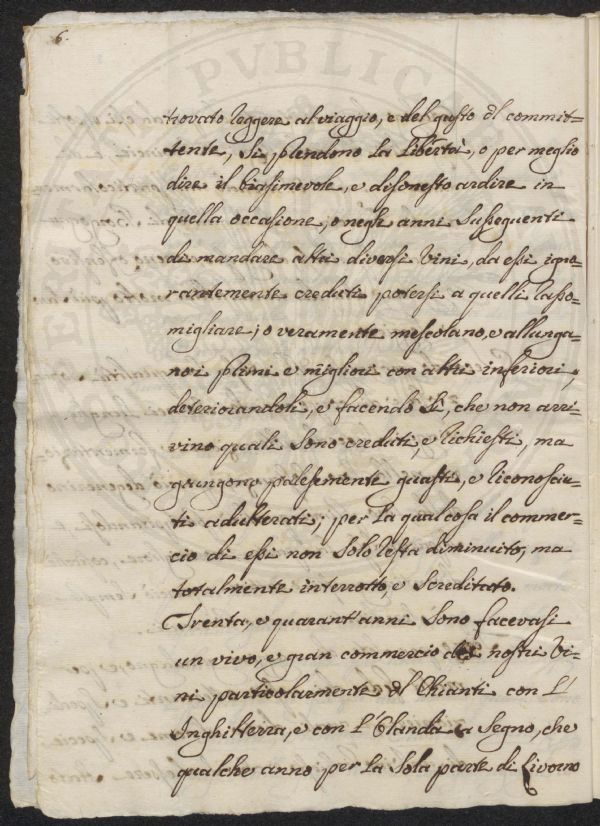 6.
trovato reggere al viaggio, e del gusto dl commit=
tente, si prendono la libertà, o per meglio
dire il biasimevole, e disonesto ardire in
quella occasione, o negli anni susseguenti
di mandare altri diversi vini, da essi igno=
rantemente creduti potersi a quelli rasso=
migliare; o veramente mescolano, e allunga=
no i primi e migliori con altri inferiori,
deteriorandoli, e facendo sì, che non arri=
vino quali sono creduti, e richiesti, ma
giungono palesemente guasti, e riconosciu=
ti adulterati; per la qual cosa il commer=
cio di essi non solo resta diminuito, ma
totalmente interrotto, e screditato.
Trenta, e quarant'anni sono facevasi
un vivo, e gran commercio dei nostri vi=
ni particolarmente dl Chianti con l'
Inghilterra, e con l'Olanda a segno, che
qualche anno per la sola parte di Livorno